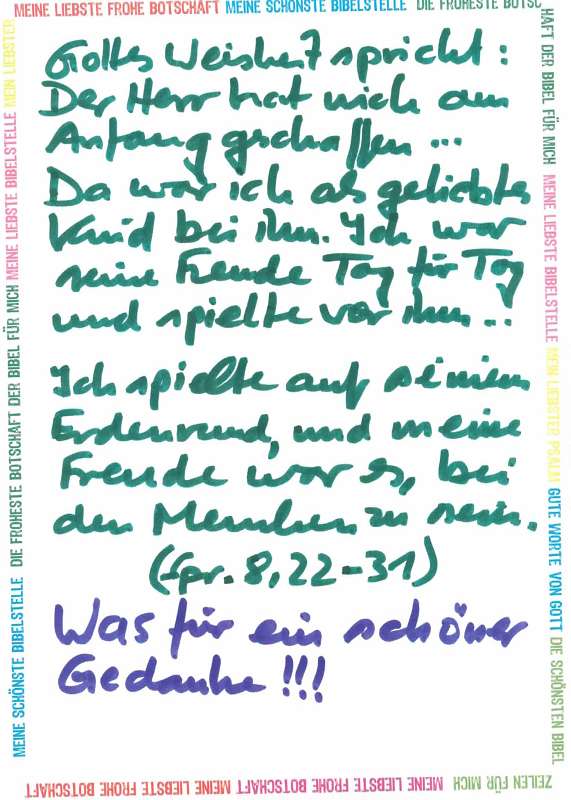 MEINE LIEBSTE FROHE BOTSCHAFT MEINE SCHÖNSTE BIBELSTELLE DIE FROHESTE BOTSC
HAFT DER BIBEL FÜR MICH MEINE LIEBSTE BIBELSTELLE MEIN LIEBSTER PSALM GUTE WORTE VON GOTT DIE SCHÖNSTEN BIBEL
ZEILEN FÜR MICH MEINE LIEBSTE FROHE BOTSCHAFT MEINE LIEBSTE FROHE BOTSCHAFT
MEINE SCHÖNSTE BIBELSTELLE DIE FROHESTE BOTSCHAFT DER BIBEL FÜR MICH MEINE LIEBSTE BIBELSTELLE MEIN LIEBSTER
Gottes Weisheit spricht:
Der Herr hat mich am
Anfang geschaffen ...
Da war ich als geliebtes
Kind bei ihm. Ich war
seine Freude Tag für Tag
und spielte vor ihm ...
Ich spielte auf seinem
Erdenrund, und meine
Freude war es, bei
den Menschen zu sein.
(Spr. 8, 22-31)
Was für ein schöner
Gedanke !!!